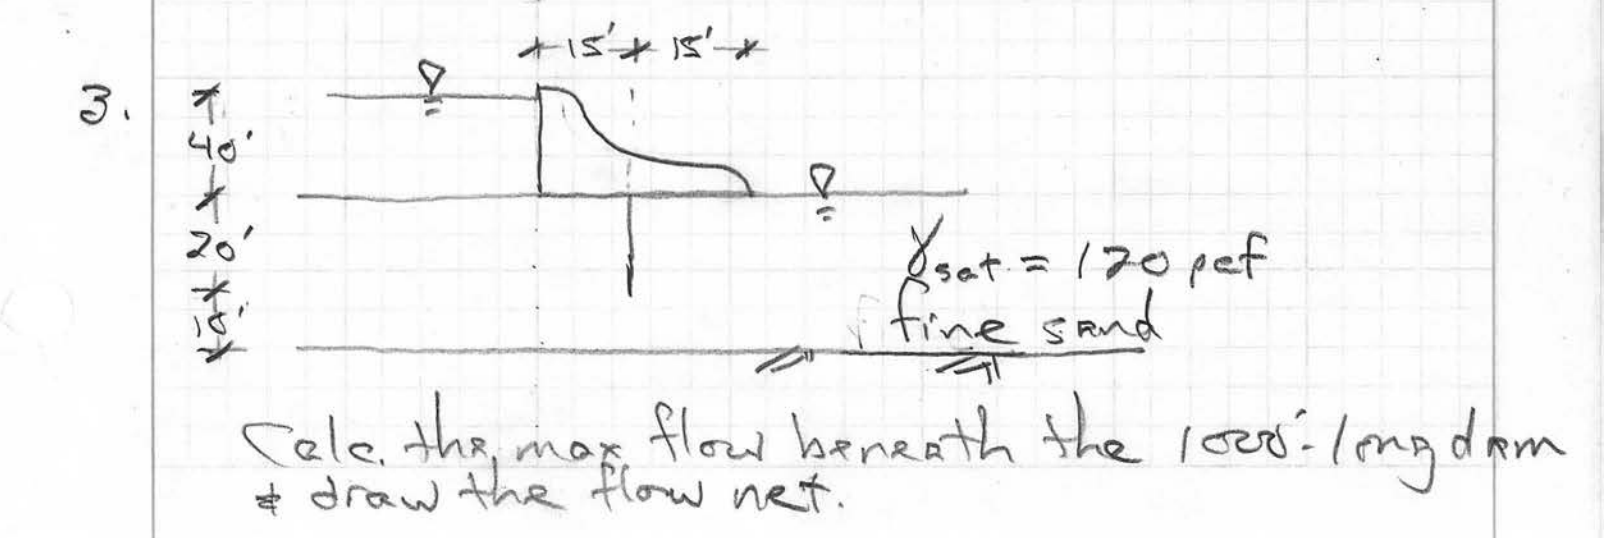 15' 15'
3.
40'
20'
γsat. = 120 pcf
fine sand
Calc. the max flow beneath the 1000'-long dam
& draw the flow net.